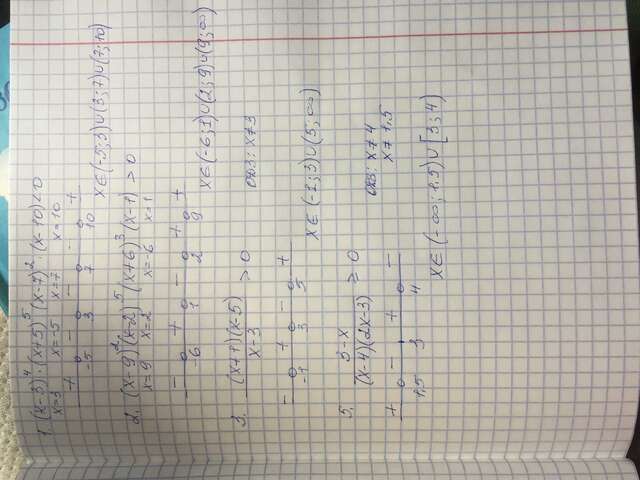 1. (x-3)⁴·(x+5)⁵(x-7)²·(x-10)<0
x=3 x=-5 x=7 x=10
+ - - - +
-5 3 7 10
x∈(-5;3)∪(3;7)∪(7;10)
2. (x-9)²(x-2)⁵(x+6)³(x-1)>0
x=9 x=2 x=-6 x=1
- + - + +
-6 1 2 9
x∈(-6;1)∪(2;9)∪(9;∞)
3. (x+1)(x-5)
x-3
>0
ОДЗ: x≠3
- + - +
-1 3 5
x∈(-1;3)∪(5;∞)
5. 3-x
(x-4)(2x-3)
≥0
ОДЗ: x≠4
x≠1,5
+ - + -
1,5 3 4
x∈(-∞;1,5)∪[3;4)